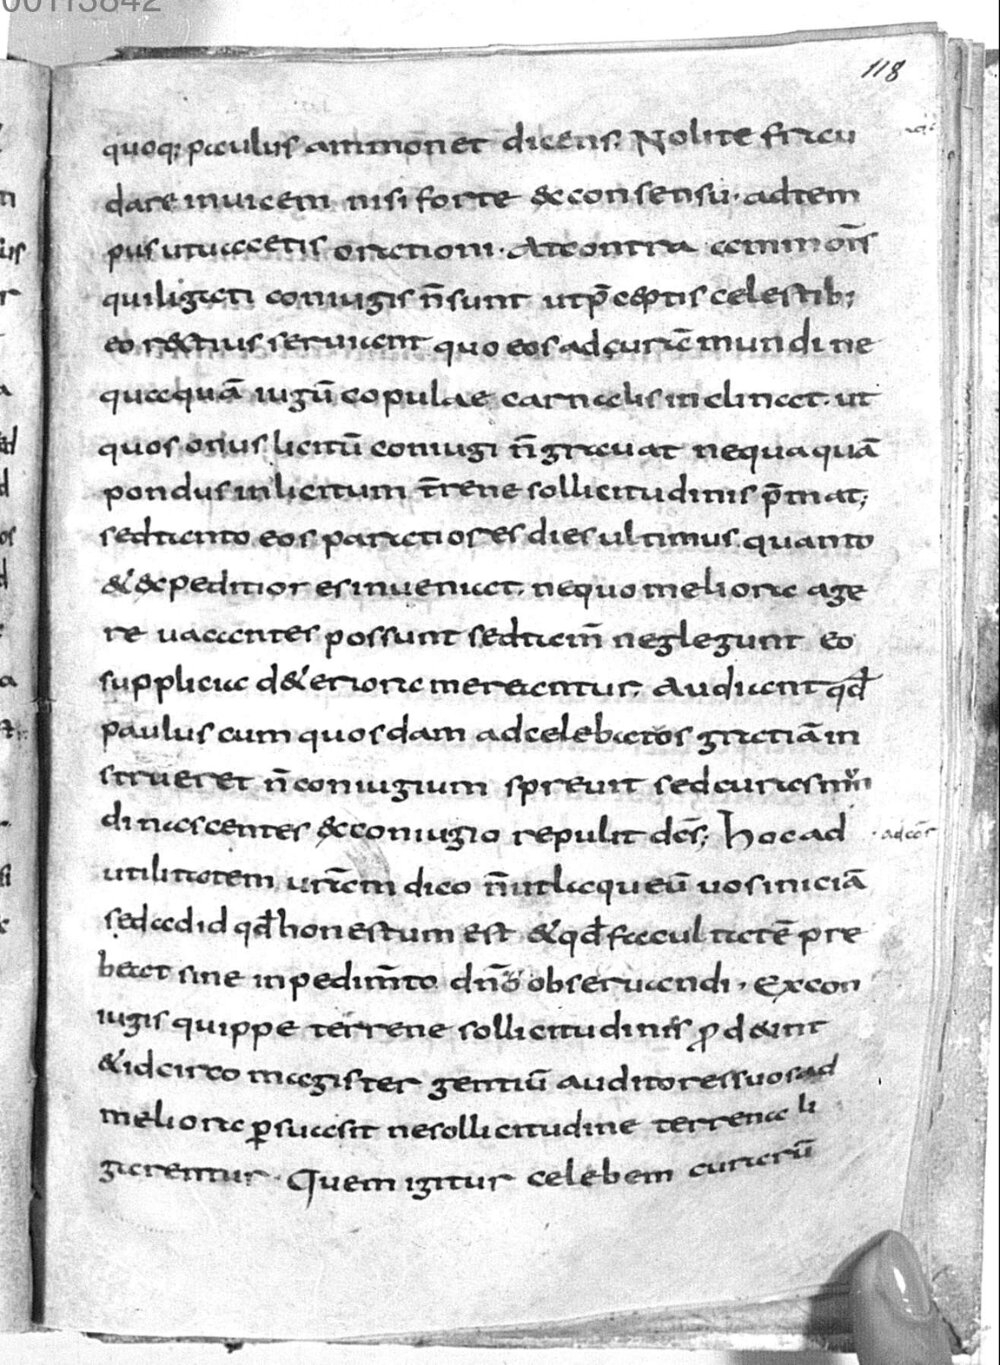 00113842
118
quoq; paulus ammonet dicens; Nolite frau
dare inuicem nisi forte & consensu· ad tem
pus ut uacetis orationi· At contra ammon̄s
qui ligati coniugis n̄ sunt ut p̄ceptis celestib;
eo rectius seruiant quo eos ad curā mundi ne
quaquā iugū copulae carnalis inclinat. ut
quos onus licitū coniugi n̄ grauat nequaquā
pondus inlicitum t̄rene sollicitudinis p̄mat;
sed tanto eos paratiores dies ultimus quanto
& expeditiores inueniat. ne quo meliora age
re uacantes possunt sed tam̄ neglegunt eo
supplicia d&eriora mereantur; Audiant qd̄
paulus cum quosdam ad celebatos gratiā in
strueret n̄ coniugium spreuit sed curas mun
di nascentes & coniugio repulit dc̄s; Hoc ad
·ad cor̄
utilitatem ur̄am dico n̄ ut laqueū uos iniciā
sed ad id qd̄ honestum est & qd̄ facultatē pre
beat sine inpedim̄to dn̄o obseruandi· Ex con
iugis quippe terrene sollicitudinis prod&unt
& idcirco magister gentiū auditores suos ad
meliora ꝑsuasit ne sollicitudine terrena li
garentur· Quem igitur celebem curarū